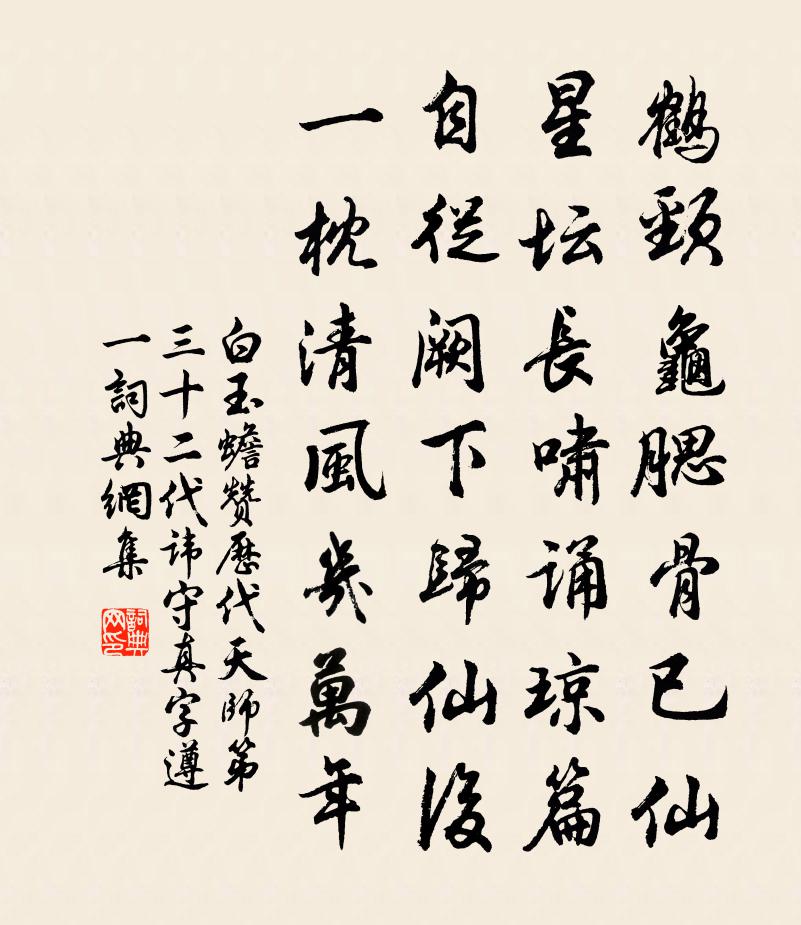 鶴頸龜腮骨已仙
星坛長嘯诵琼篇
自從阙下歸仙後
一枕清風幾萬年
白玉蟾赞歷代天師第
三十二代讳守真字遵
一詞典網集
詞典